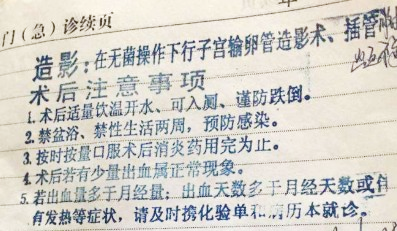 门(急)诊续页
造影:在无菌操作下行子宫输卵管造影术、插管
术后注意事项
1.术后适量饮温开水、可入厕、谨防跌倒。
2.禁盆浴、禁性生活两周,预防感染。
3.按时按量口服术后消炎药用完为止。
4.术后若有少量出血属正常现象。
5.若出血量多于月经量;出血天数多于月经天数或
有发热等症状,请及时携化验单和病历本就诊。